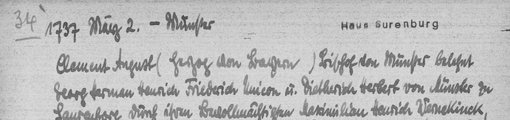 34
1737 März 2. – Münster
Haus Surenburg
Clement August (Herzog von Bayern) Bischof von Münster belehnt
Georg Herman Henrich Friederich Unicon u. Dietherich Herbert von Münster zu
durch ihren Bevollmächtigten Maximilian Henrich Vernekinck,